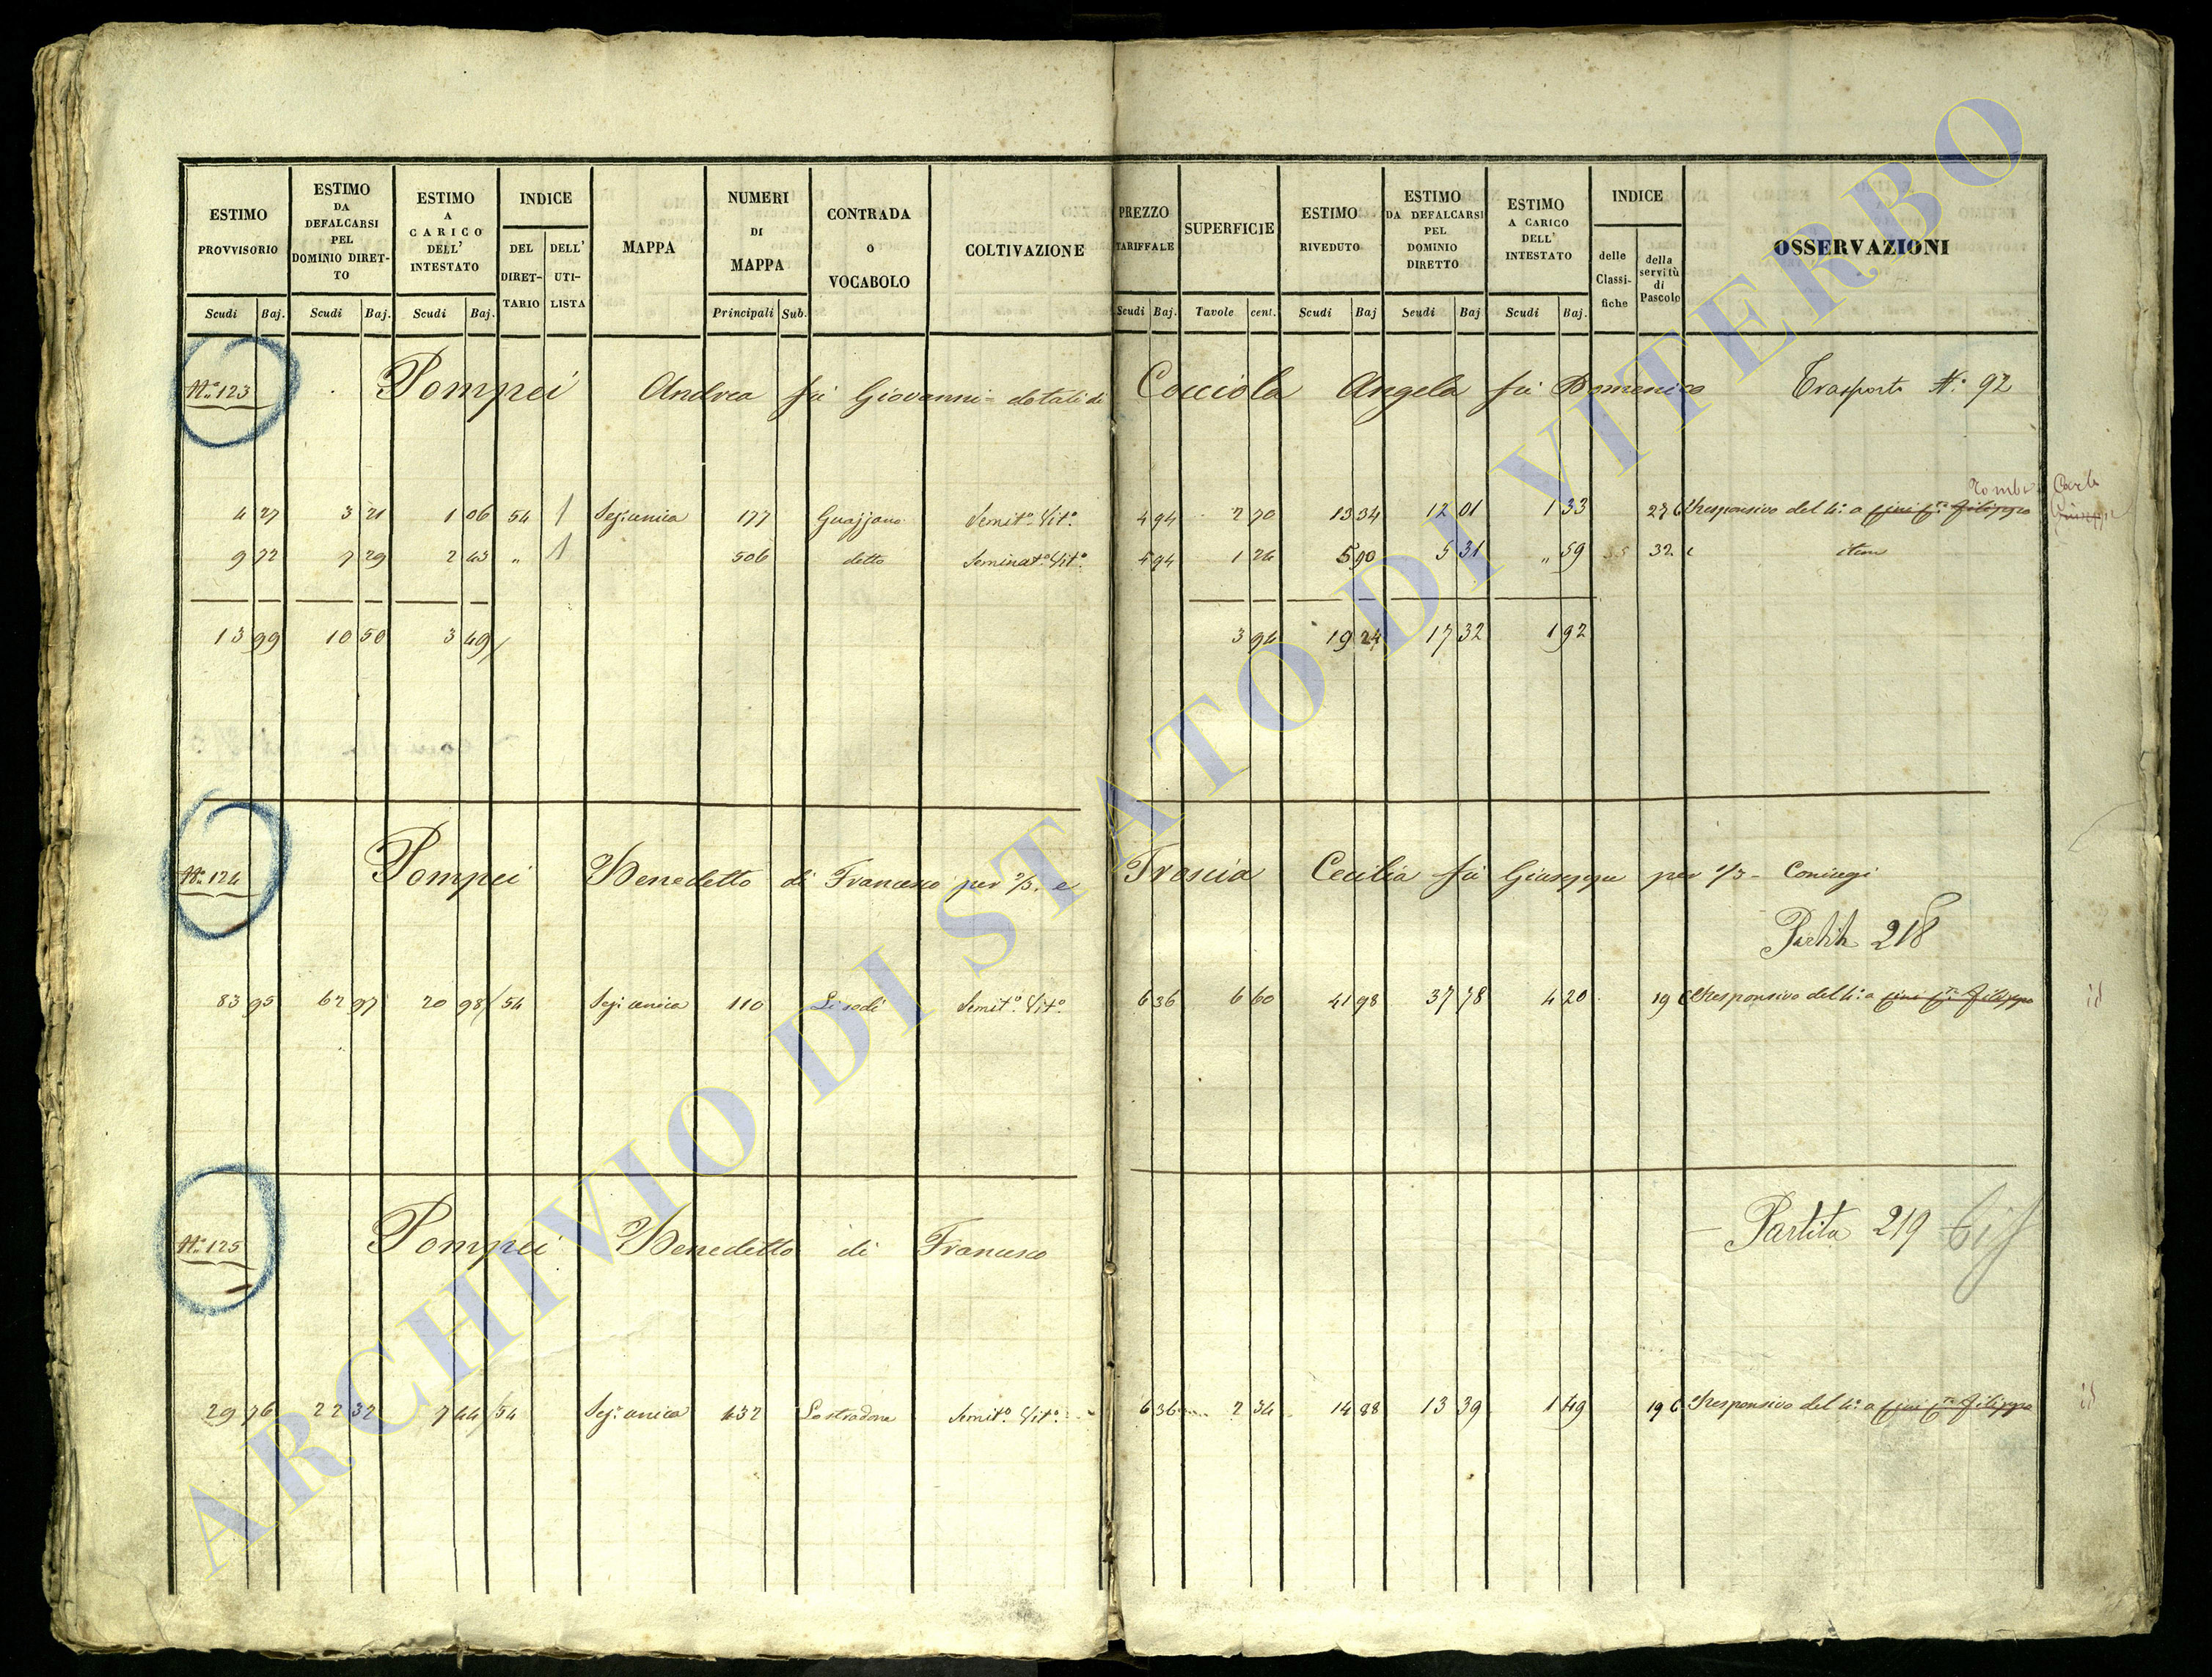 ESTIMO PROVVISORIO
ESTIMO DA DEFALCARSI PEL DOMINIO DIRET-TO
ESTIMO A CARICO DELL' INTESTATO
INDICE
DEL DIRET-TARIO
DELL' UTI-LISTA
MAPPA
NUMERI DI MAPPA
CONTRADA O VOCABOLO
COLTIVAZIONE
PREZZO TARIFFALE
SUPERFICIE
ESTIMO RIVEDUTO
ESTIMO DA DEFALCARSI PEL DOMINIO DIRETTO
ESTIMO A CARICO DELL' INTESTATO
INDICE
delle Classi-fiche
della servitù di Pascolo
OSSERVAZIONI
Scudi Baj. Scudi Baj. Scudi Baj. Principali Sub. Scudi Baj. Tavole cent. Scudi Baj Scudi Baj Scudi Baj.
N.º 123 Pompei Andrea fù Giovanni = dotali di Cocciola Angela fù Domenico Trasporto N.º 92
4 27 3 21 1 06 54 1 Sez. unica 177 Semit.º Vit.º 4 94 2 70 13 34 12 01 1 33 Responsivo del 4.º a Filippo
9 72 7 29 2 43 " 1 506 detto Seminat.º Vit.º 1 26 5 90 5 31 " 59 32 item
13 99 10 50 3 49 3 96 19 24 17 32 1 92
N.º 124 Pompei Benedetto di Francesco per 2/3. e Froscia Cecilia fù Giuseppe per 1/3 - Coniugi
Partita 218
83 95 62 97 20 98 54 Sez. unica 110 Li sodi Semit.º Vit.º 6 36 6 60 41 98 37 78 4 20 19 Responsivo del 4.º a Filippo id
N.º 125 Pompei Benedetto di Francesco
Partita 219 bis
29 76 22 32 7 44 54 Sez. unica 432 Lo stradone Semit.º Vit.º 6 36 2 34 14 88 13 39 1 49 19 Responsivo del 4.º a Filippo id
ARCHIVIO DI STATO DI VITERBO